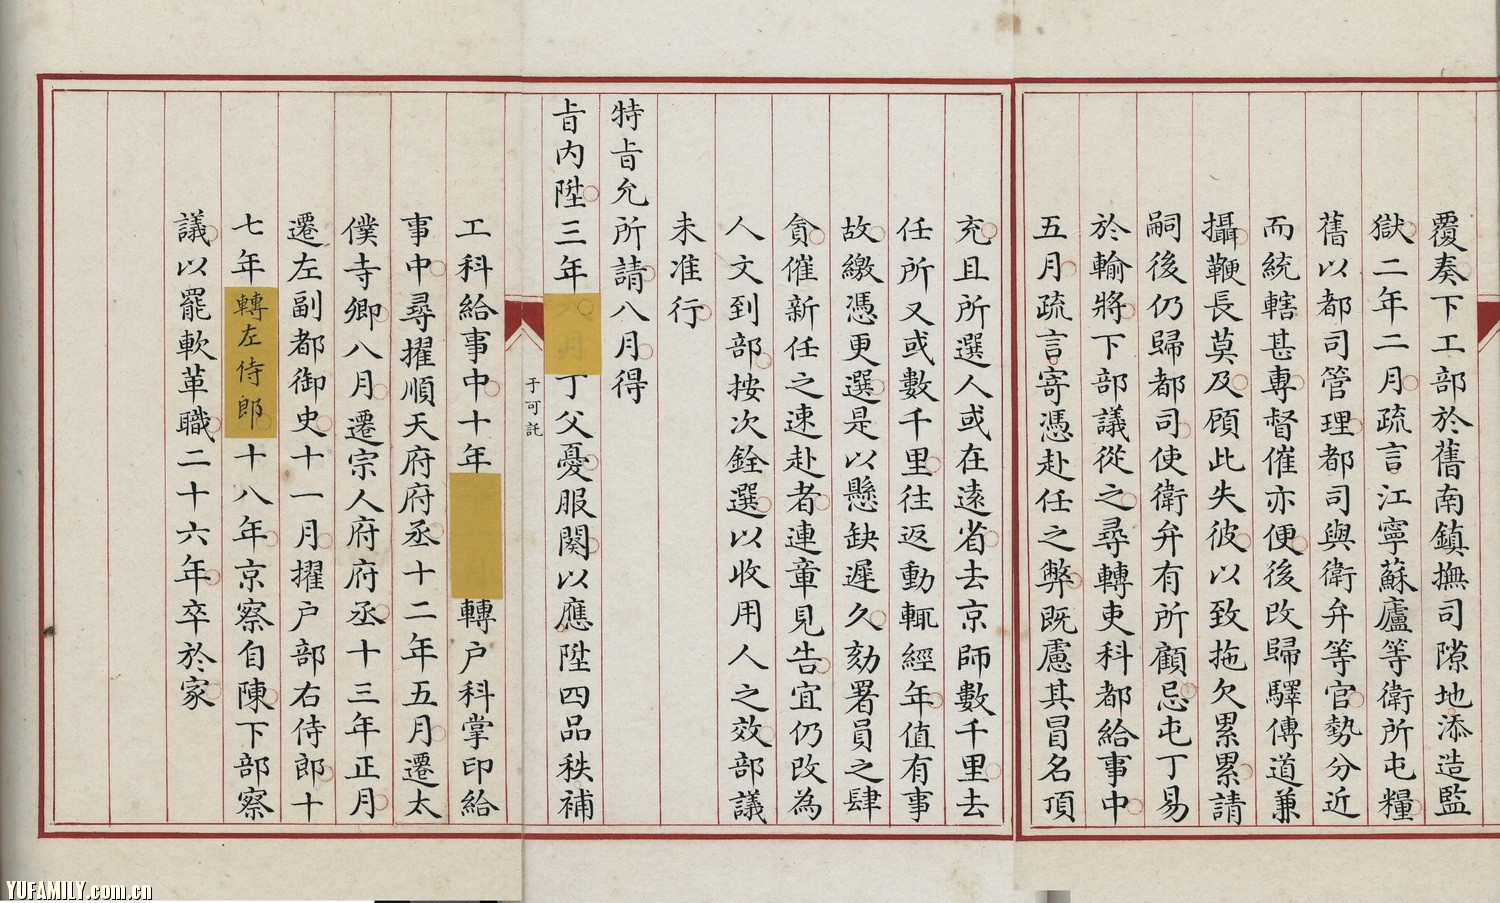 覆奏下工部於舊南鎮撫司隙地添造監
獄二年二月疏言江寧蘇廬等衛所屯糧
舊以都司管理都司與衛弁等官勢分近
而統轄甚專督催亦便後改歸驛傳道兼
攝鞭長莫及顧此失彼以致拖欠累累請
嗣後仍歸都司使衛弁有所顧忌屯丁易
於輸將下部議從之尋轉吏科都給事中
五月疏言寄憑赴任之弊既慮其冒名頂
充且所選人或在遠省去京師數千里去
任所又或數千里往返動輒經年值有事
故繳憑更選是以懸缺遲久劾署員之肆
貪催新任之速赴者連章見告宜仍改為
人文到部按次銓選以收用人之效部議
未准行
特旨允所請八月得
旨內陞三年六月丁父憂服闋以應陞四品秩補
于可託
工科給事中十年 轉户科掌印給
事中尋擢順天府府丞十二年五月遷太
僕寺卿八月遷宗人府府丞十三年正月
遷左副都御史十一月擢户部右侍郎十
七年轉左侍郎十八年京察自陳下部察
議以罷軟革職二十六年卒於家
YUFAMILY.com.cn